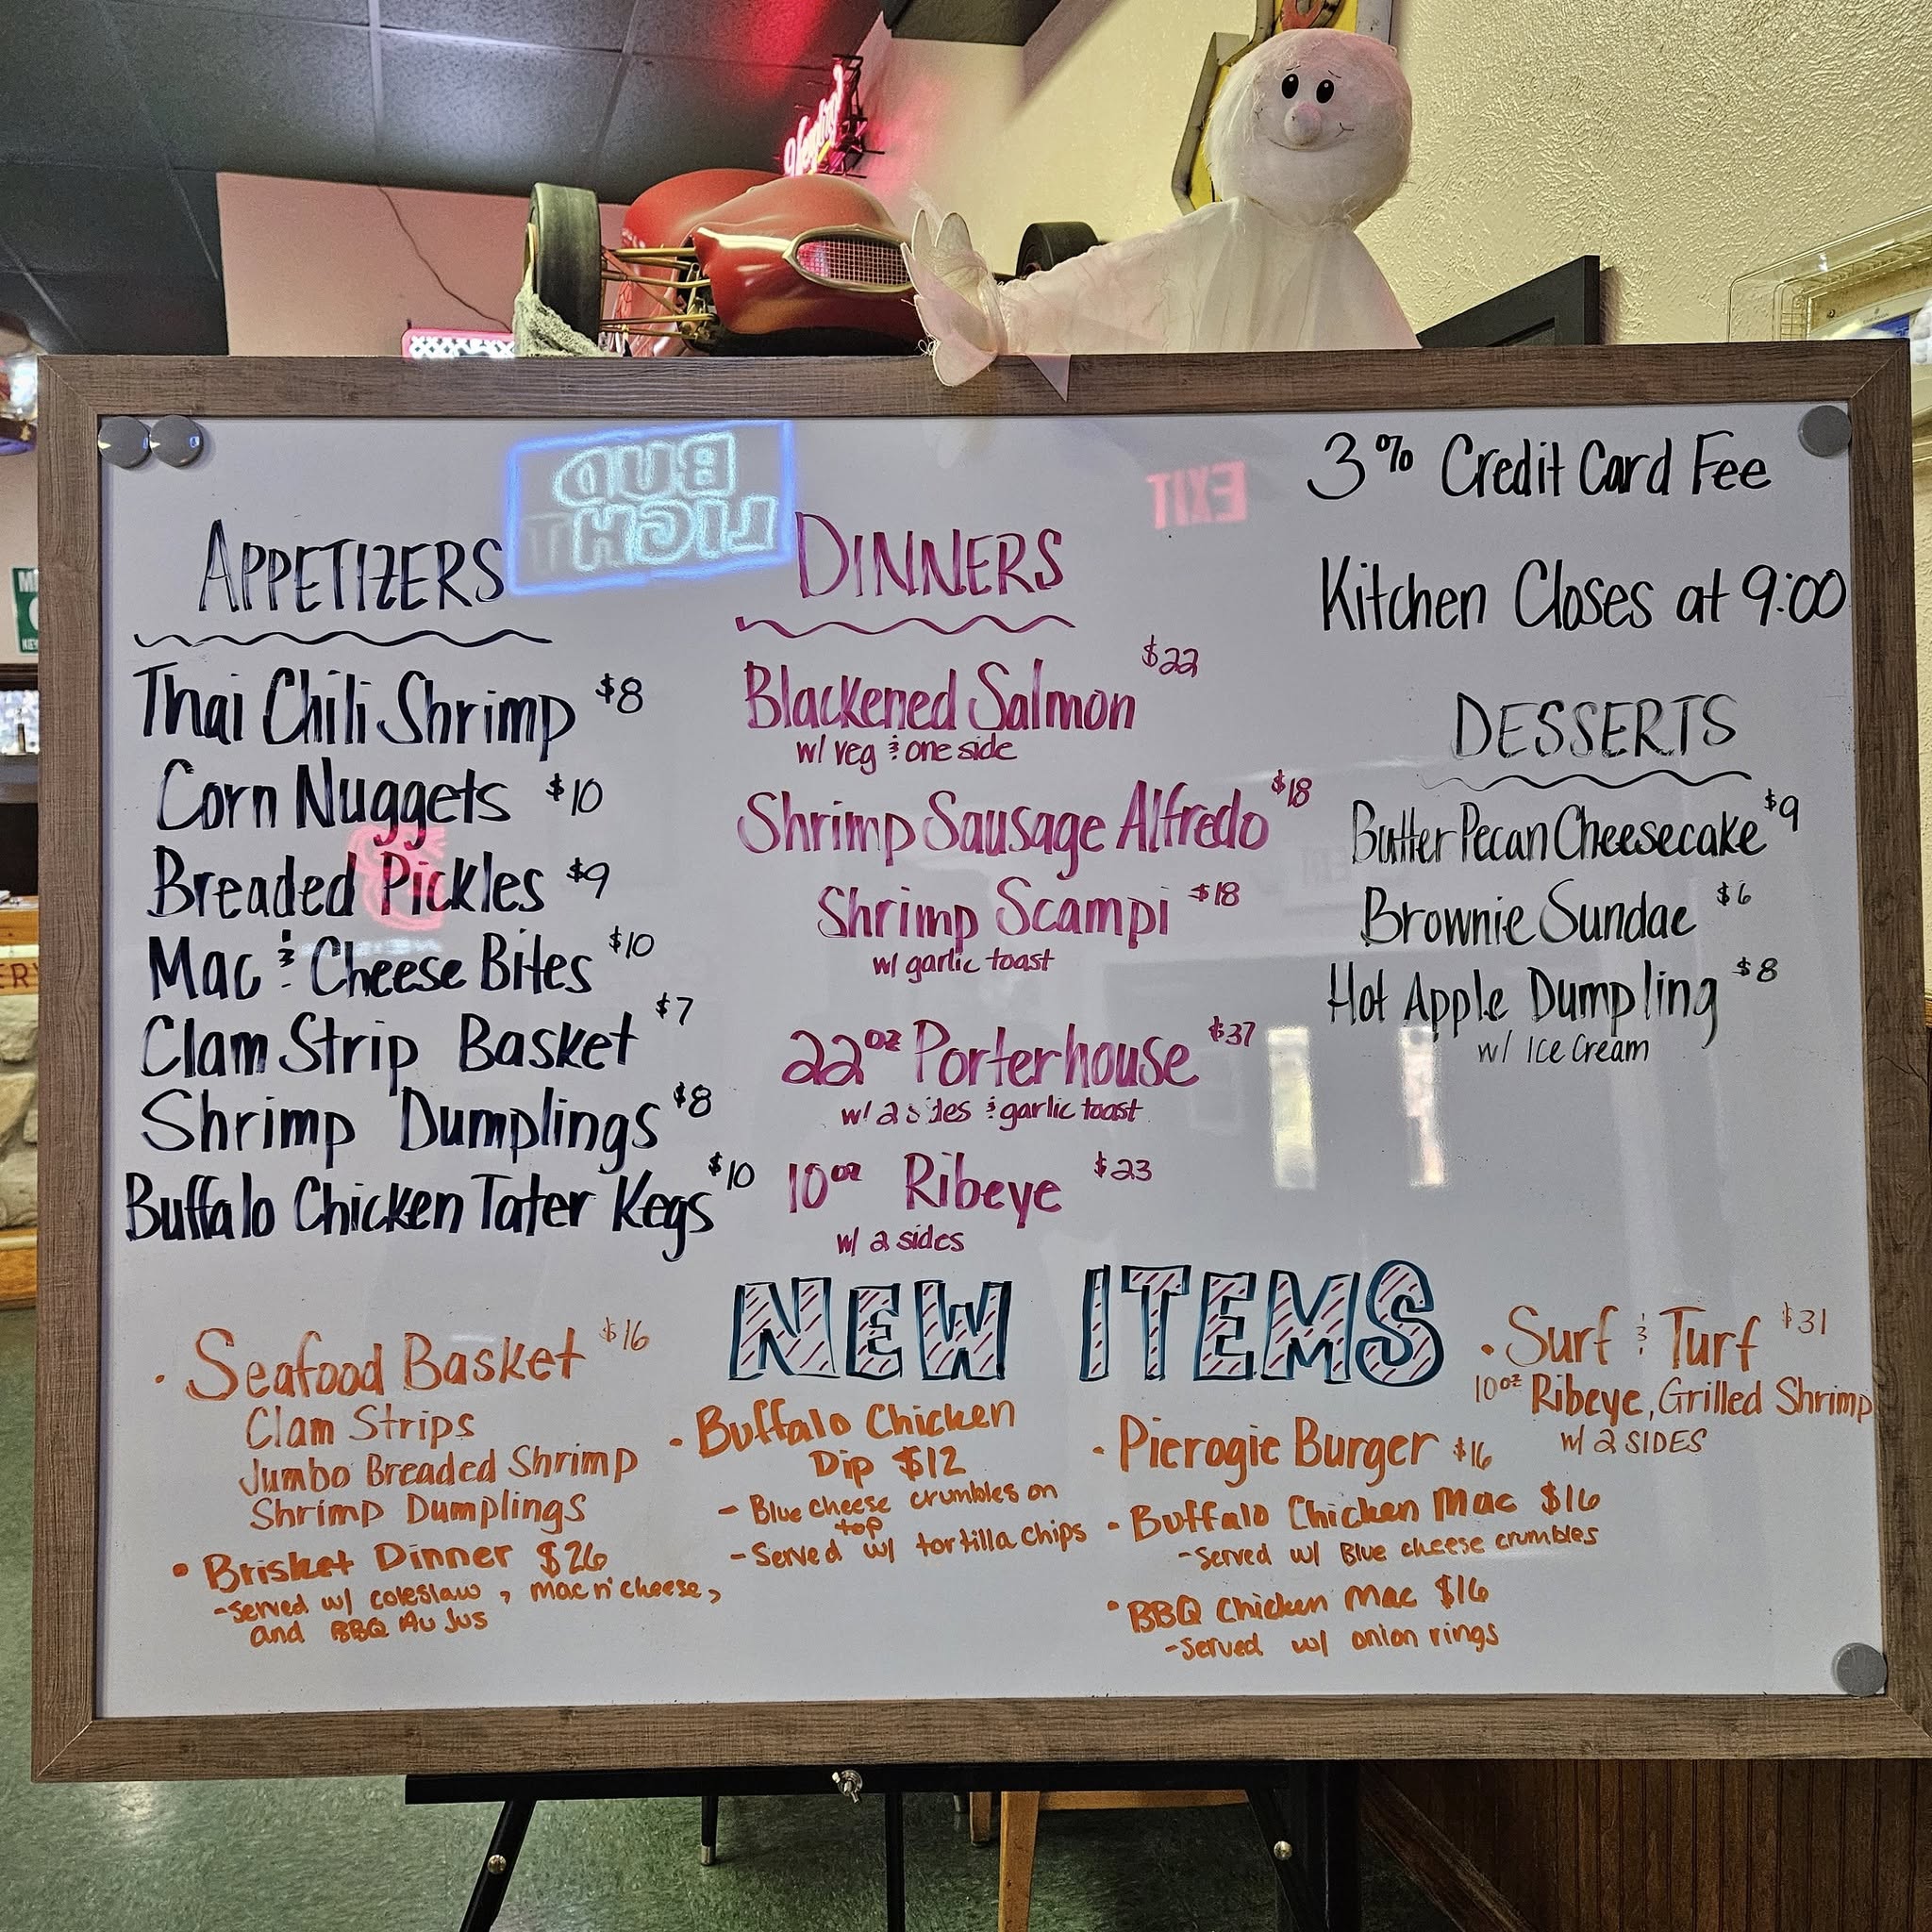 Yuengling
3% Credit Card Fee
Kitchen Closes at 9:00
BUD
LIGHT
EXIT
APPETIZERS
Thai Chili Shrimp $8
Corn Nuggets $10
Breaded Pickles $9
Mac & Cheese Bites $10
Clam Strip Basket $7
Shrimp Dumplings $8
Buffalo Chicken Tater Kegs $10
DINNERS
Blackened Salmon $22
w/ veg & one side
Shrimp Sausage Alfredo $18
Shrimp Scampi $18
w/ garlic toast
22oz Porterhouse $37
w/ 2 sides & garlic toast
10oz Ribeye $23
w/ 2 sides
DESSERTS
Butter Pecan Cheesecake $9
Brownie Sundae $6
Hot Apple Dumpling $8
w/ Ice Cream
NEW ITEMS
· Seafood Basket $16
Clam Strips
Jumbo Breaded Shrimp
Shrimp Dumplings
• Brisket Dinner $26
-Served w/ coleslaw, mac n' cheese,
and BBQ Au Jus
· Buffalo Chicken
Dip $12
- Blue cheese crumbles on
top
- Served w/ tortilla chips
· Pierogie Burger $16
· Buffalo Chicken Mac $16
-Served w/ Blue cheese crumbles
• BBQ Chicken Mac $16
-Served w/ onion rings
• Surf & Turf $31
10oz Ribeye, Grilled Shrimp
w/ 2 SIDES